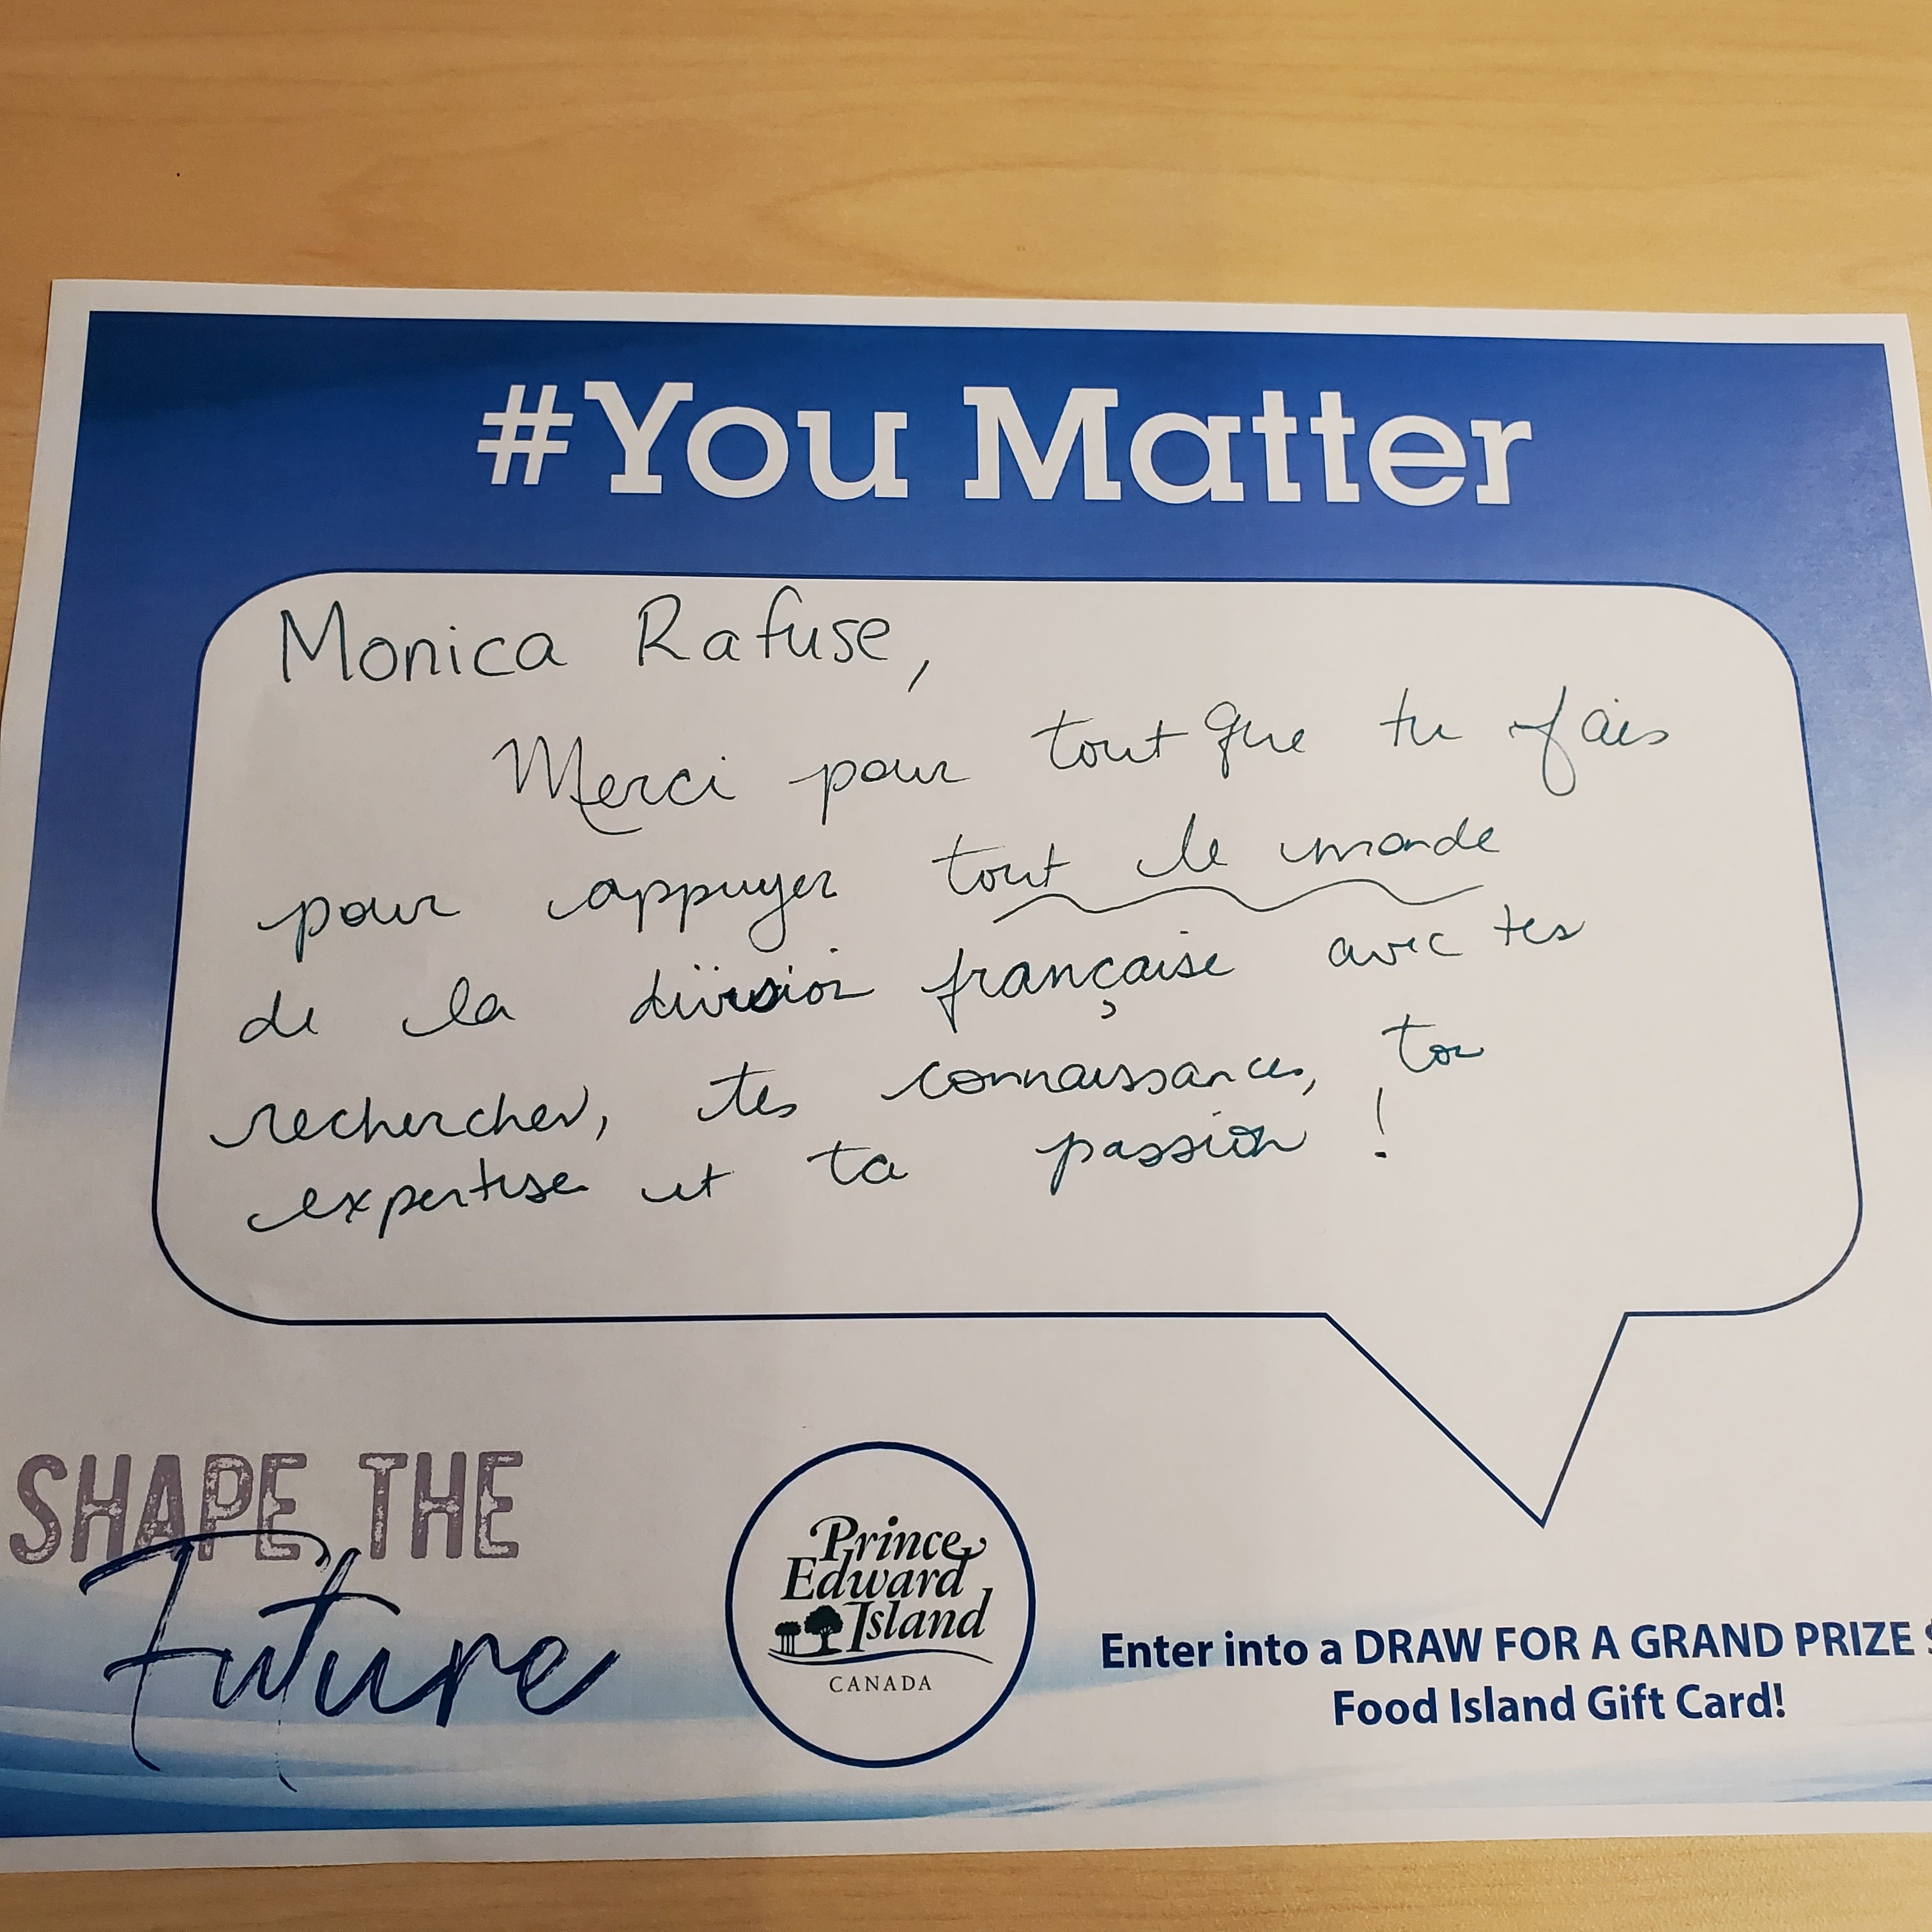 #You Matter
Monica Rafuse,
Merci pour tout que tu fais
pour appuyer tout le monde
de la division française avec tes
recherches, tes connaissances, ton
expertise et ta passion !
SHAPE THE
Future
Prince
Edward
Island
CANADA
Enter into a DRAW FOR A GRAND PRIZE $
Food Island Gift Card!